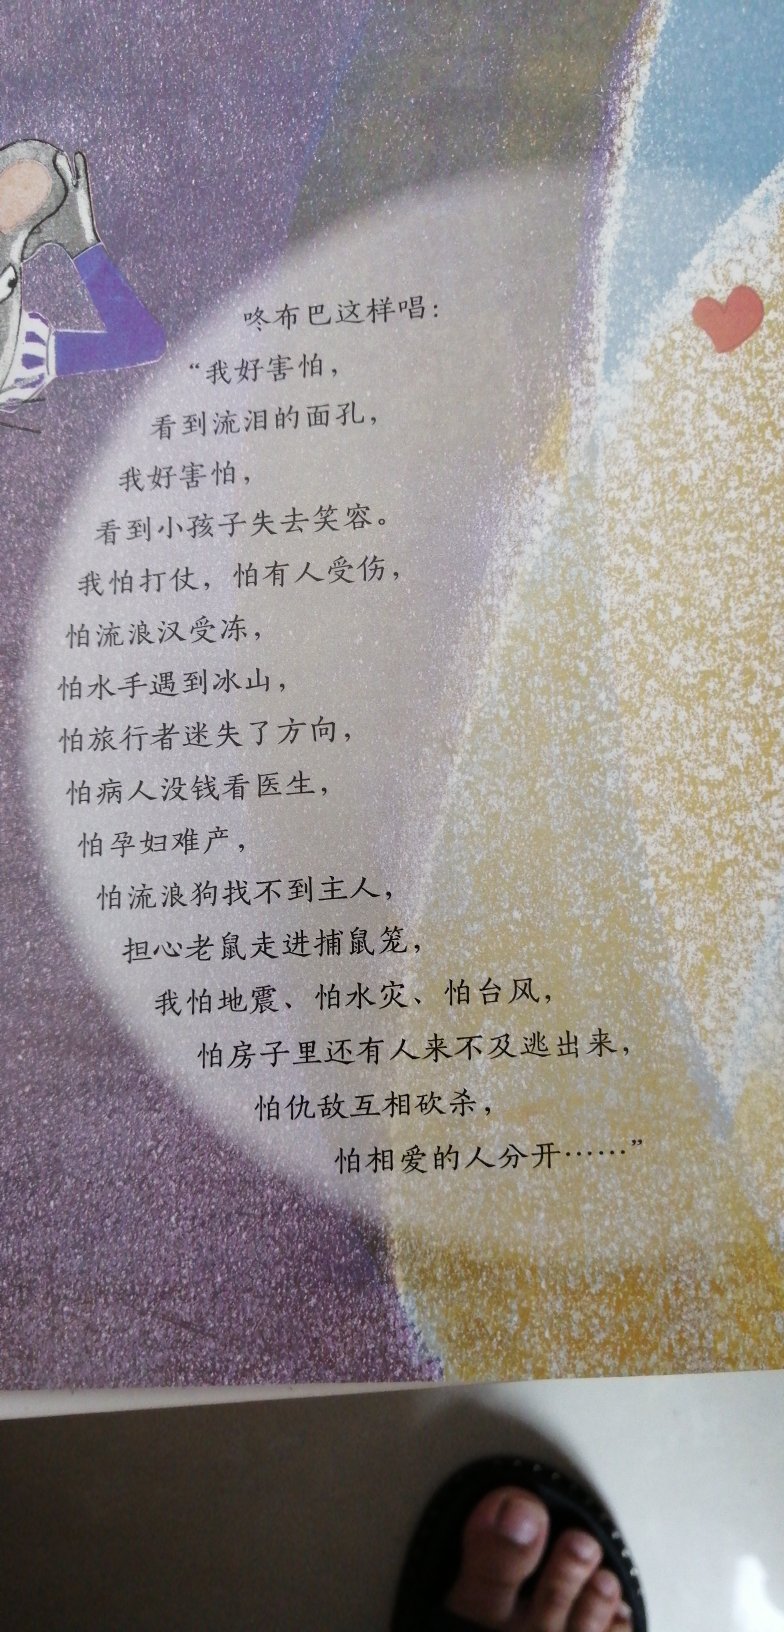 咚布巴这样唱：
“我好害怕，
看到流泪的面孔，
我好害怕，
看到小孩子失去笑容。
我怕打仗，怕有人受伤，
怕流浪汉受冻，
怕水手遇到冰山，
怕旅行者迷失了方向，
怕病人没钱看医生，
怕孕妇难产，
怕流浪狗找不到主人，
担心老鼠走进捕鼠笼，
我怕地震、怕水灾、怕台风，
怕房子里还有人来不及逃出来，
怕仇敌互相砍杀，
怕相爱的人分开……”